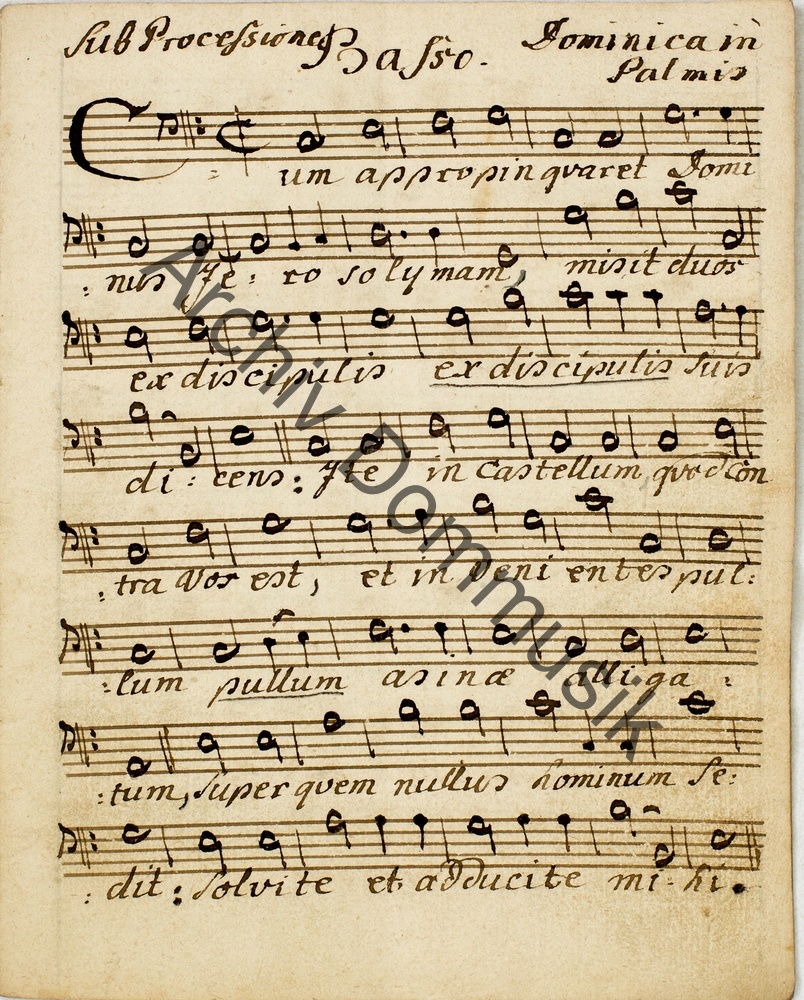 Sub Processione Basso. Dominica in
Palmis
Cum appropinquaret Domi
: nus Je : ro solymam, misit duos
ex discipulis ex discipulis suis
di : cens : Jte in Castellum, quod Con
: tra Vos est, et in Veni entes pul :
: lum pullum asinæ alli ga :
: tum, super quem nullus hominum se :
: dit : solvite et adducite mi - hi.
Archiv Dommusik